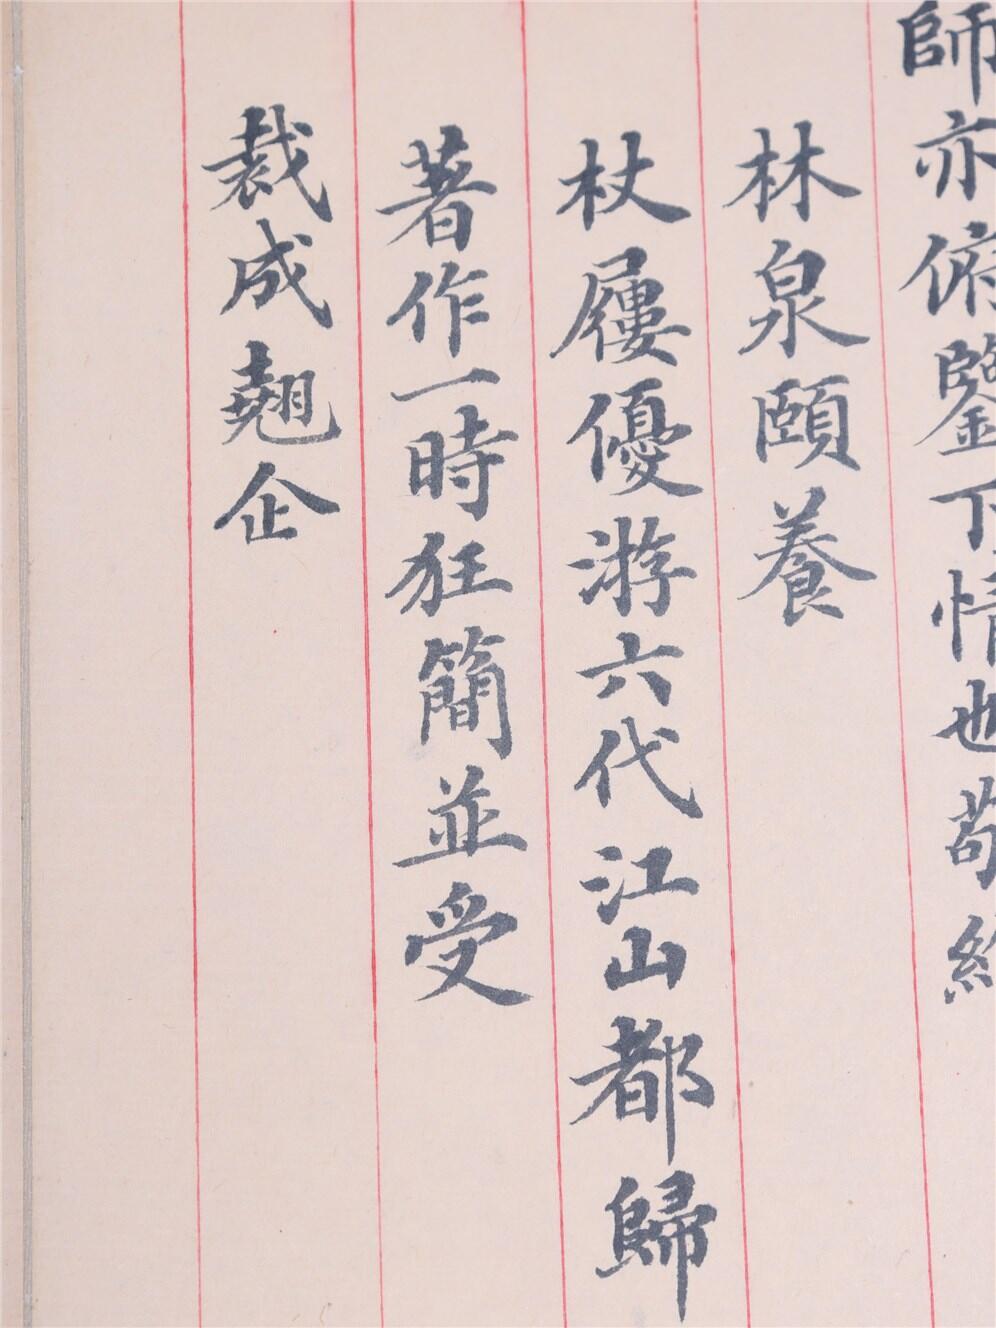 師亦俯鑒下情也敬
林泉頤養
杖屨優游六代江山都歸
著作一時狂簡並受
裁成翹企